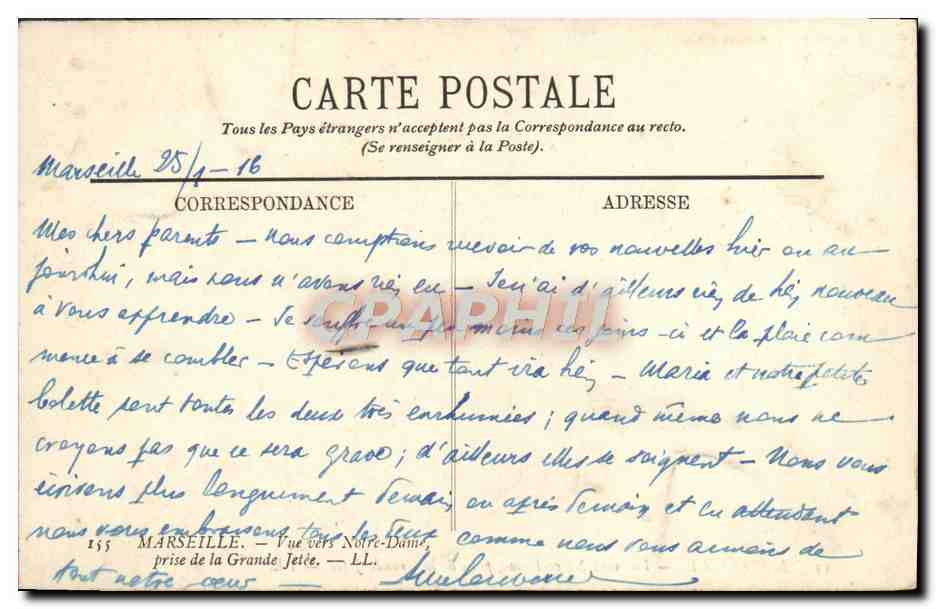 CARTE POSTALE
Tous les Pays étrangers n'acceptent pas la Correspondance au recto.
(Se renseigner à la Poste).
Marseille 25/1-16
CORRESPONDANCE
ADRESSE
Mes chers parents — nous comptions recevoir de vos nouvelles hier ou au-
jourd'hui, mais nous n'avons rien eu — Je n'ai d'ailleurs rien de bien nouveau
à vous apprendre — Je souffre un peu moins ces jours-ci et la plaie com
mence à se combler — Espérons que tout ira bien — Maria et notre petite
Colette sont toutes les deux très enrhumées ; quand même nous ne
croyons pas que ce sera grave ; d'ailleurs elles se soignent — Nous vous
écrirons plus longuement demain ou après demain et en attendant
nous vous embrassons tous les deux comme nous vous aimons de
tout notre cœur —
155 MARSEILLE. — Vue vers Notre-Dame,
prise de la Grande Jetée. — LL.
CPAPHIL